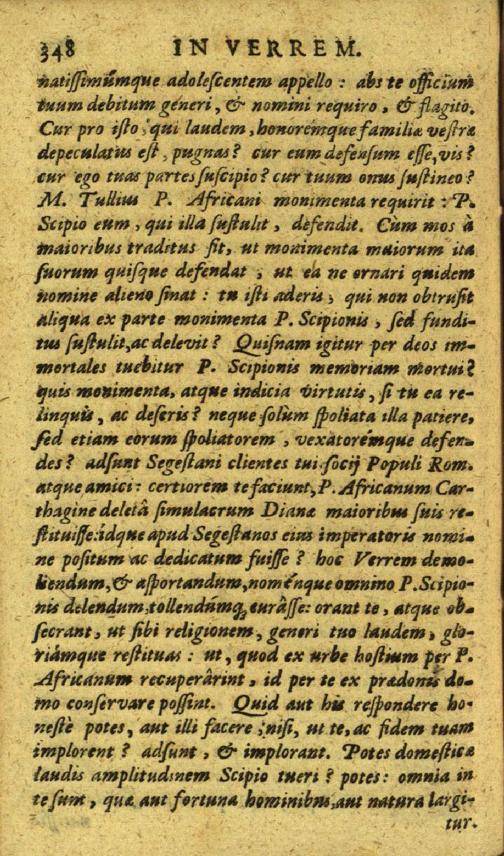 348 IN VERREM.
natissimúmque adolescentem appello : abs te officium
tuum debitum generi, & nomini requiro, & flagito.
Cur pro isto, qui laudem, honorémque familiæ vestræ
depeculatus est, pugnas? cur eum defensum esse, vis?
cur ego tuas partes suscipio? cur tuum onus sustineo?
M. Tullius P. Africani monimenta requirit : P.
Scipio eum, qui illa sustulit, defendit. Cùm mos à
maioribus traditus sit, ut monimenta maiorum ita
suorum quisque defendat, ut ea ne ornari quidem
nomine alieno sinat : tu isti aderis, qui non obtrusit
aliqua ex parte monimenta P. Scipionis, sed fundi-
tus sustulit, ac delevit? Quisnam igitur per deos im-
mortales tuebitur P. Scipionis memoriam mortui?
quis monimenta, atque indicia virtutis, si tu ea re-
linquis, ac deseris? neque solùm spoliata illa patiere,
sed etiam eorum spoliatorem, vexatorémque defen-
des? adsunt Segestani clientes tui socij Populi Rom.
atque amici : certiorem te faciunt, P. Africanum Car-
thagine deletâ simulacrum Dianæ maioribus suis re-
stituisse: idque apud Segestanos eius imperatoris nomi-
ne positum ac dedicatum fuisse? hoc Verrem demo-
liendum, & asportandum, noménque omnino P. Scipio-
nis delendum, tollendúmq, curâsse: orant te, atque ob-
secrant, ut sibi religionem, generi tuo laudem, glo-
riámque restituas : ut, quod ex urbe hostium per P.
Africanum recuperârint, id per te ex prædonis do-
mo conservare possint. Quid aut his respondere ho-
nestè potes, aut illi facere, nisi, ut te, ac fidem tuam
implorent? adsunt, & implorant. Potes domesticæ
laudis amplitudinem Scipio tueri? potes: omnia in
te sunt, quæ aut fortuna hominibus, aut natura largi-
tur.